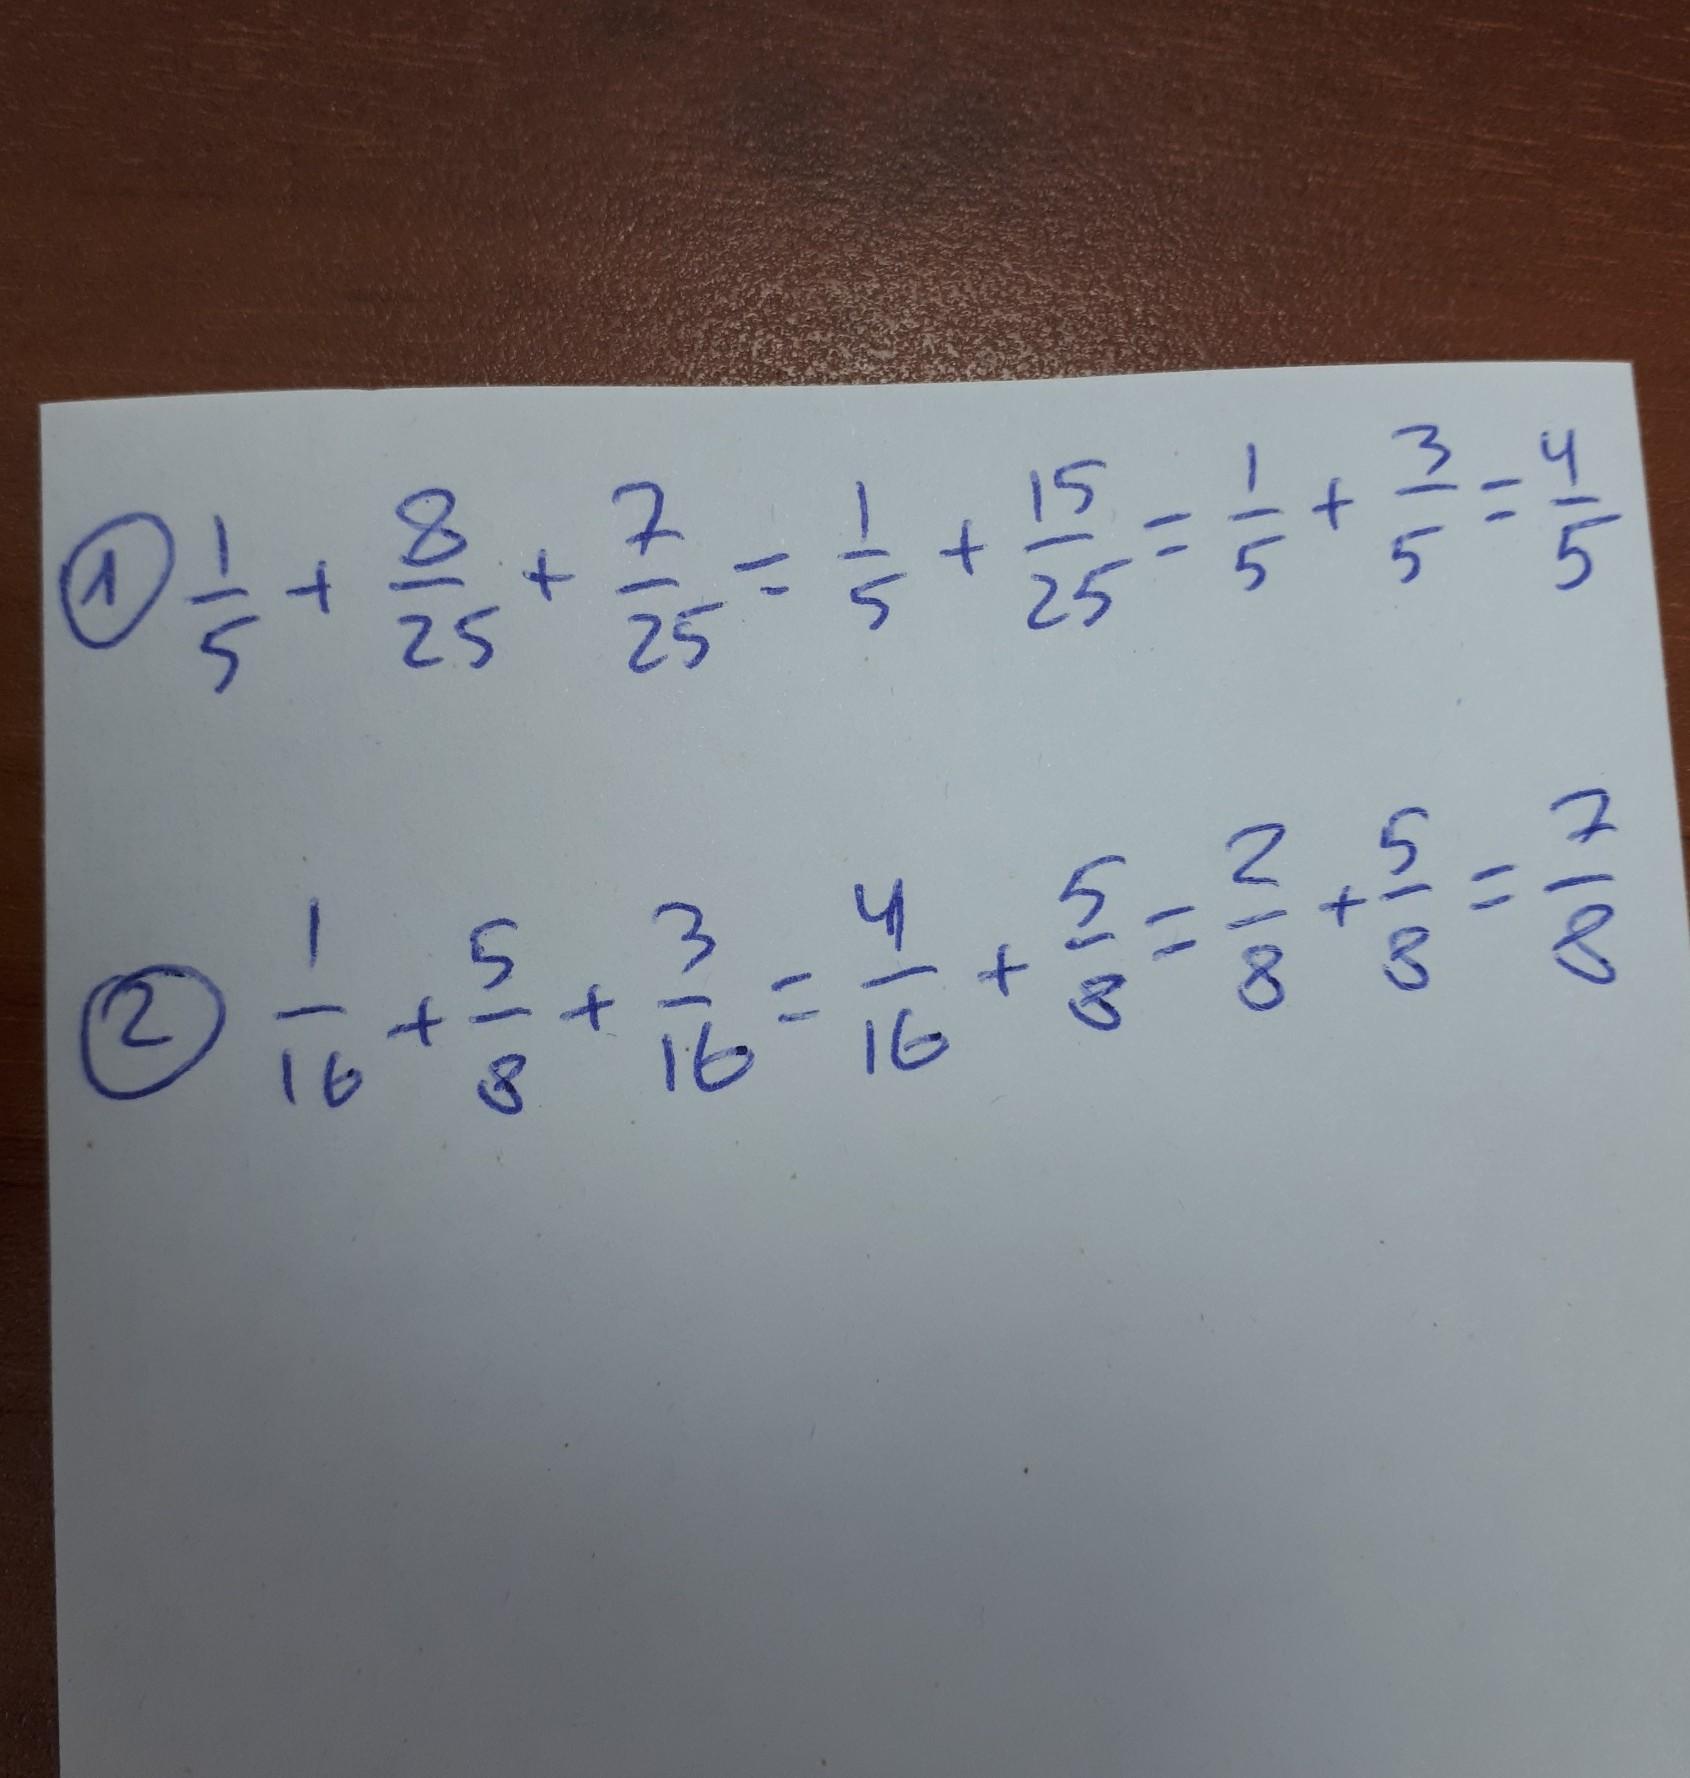 ① 1/5 + 8/25 + 7/25 = 1/5 + 15/25 = 1/5 + 3/5 = 4/5
② 1/16 + 5/8 + 3/16 = 4/16 + 5/8 = 2/8 + 5/8 = 7/8